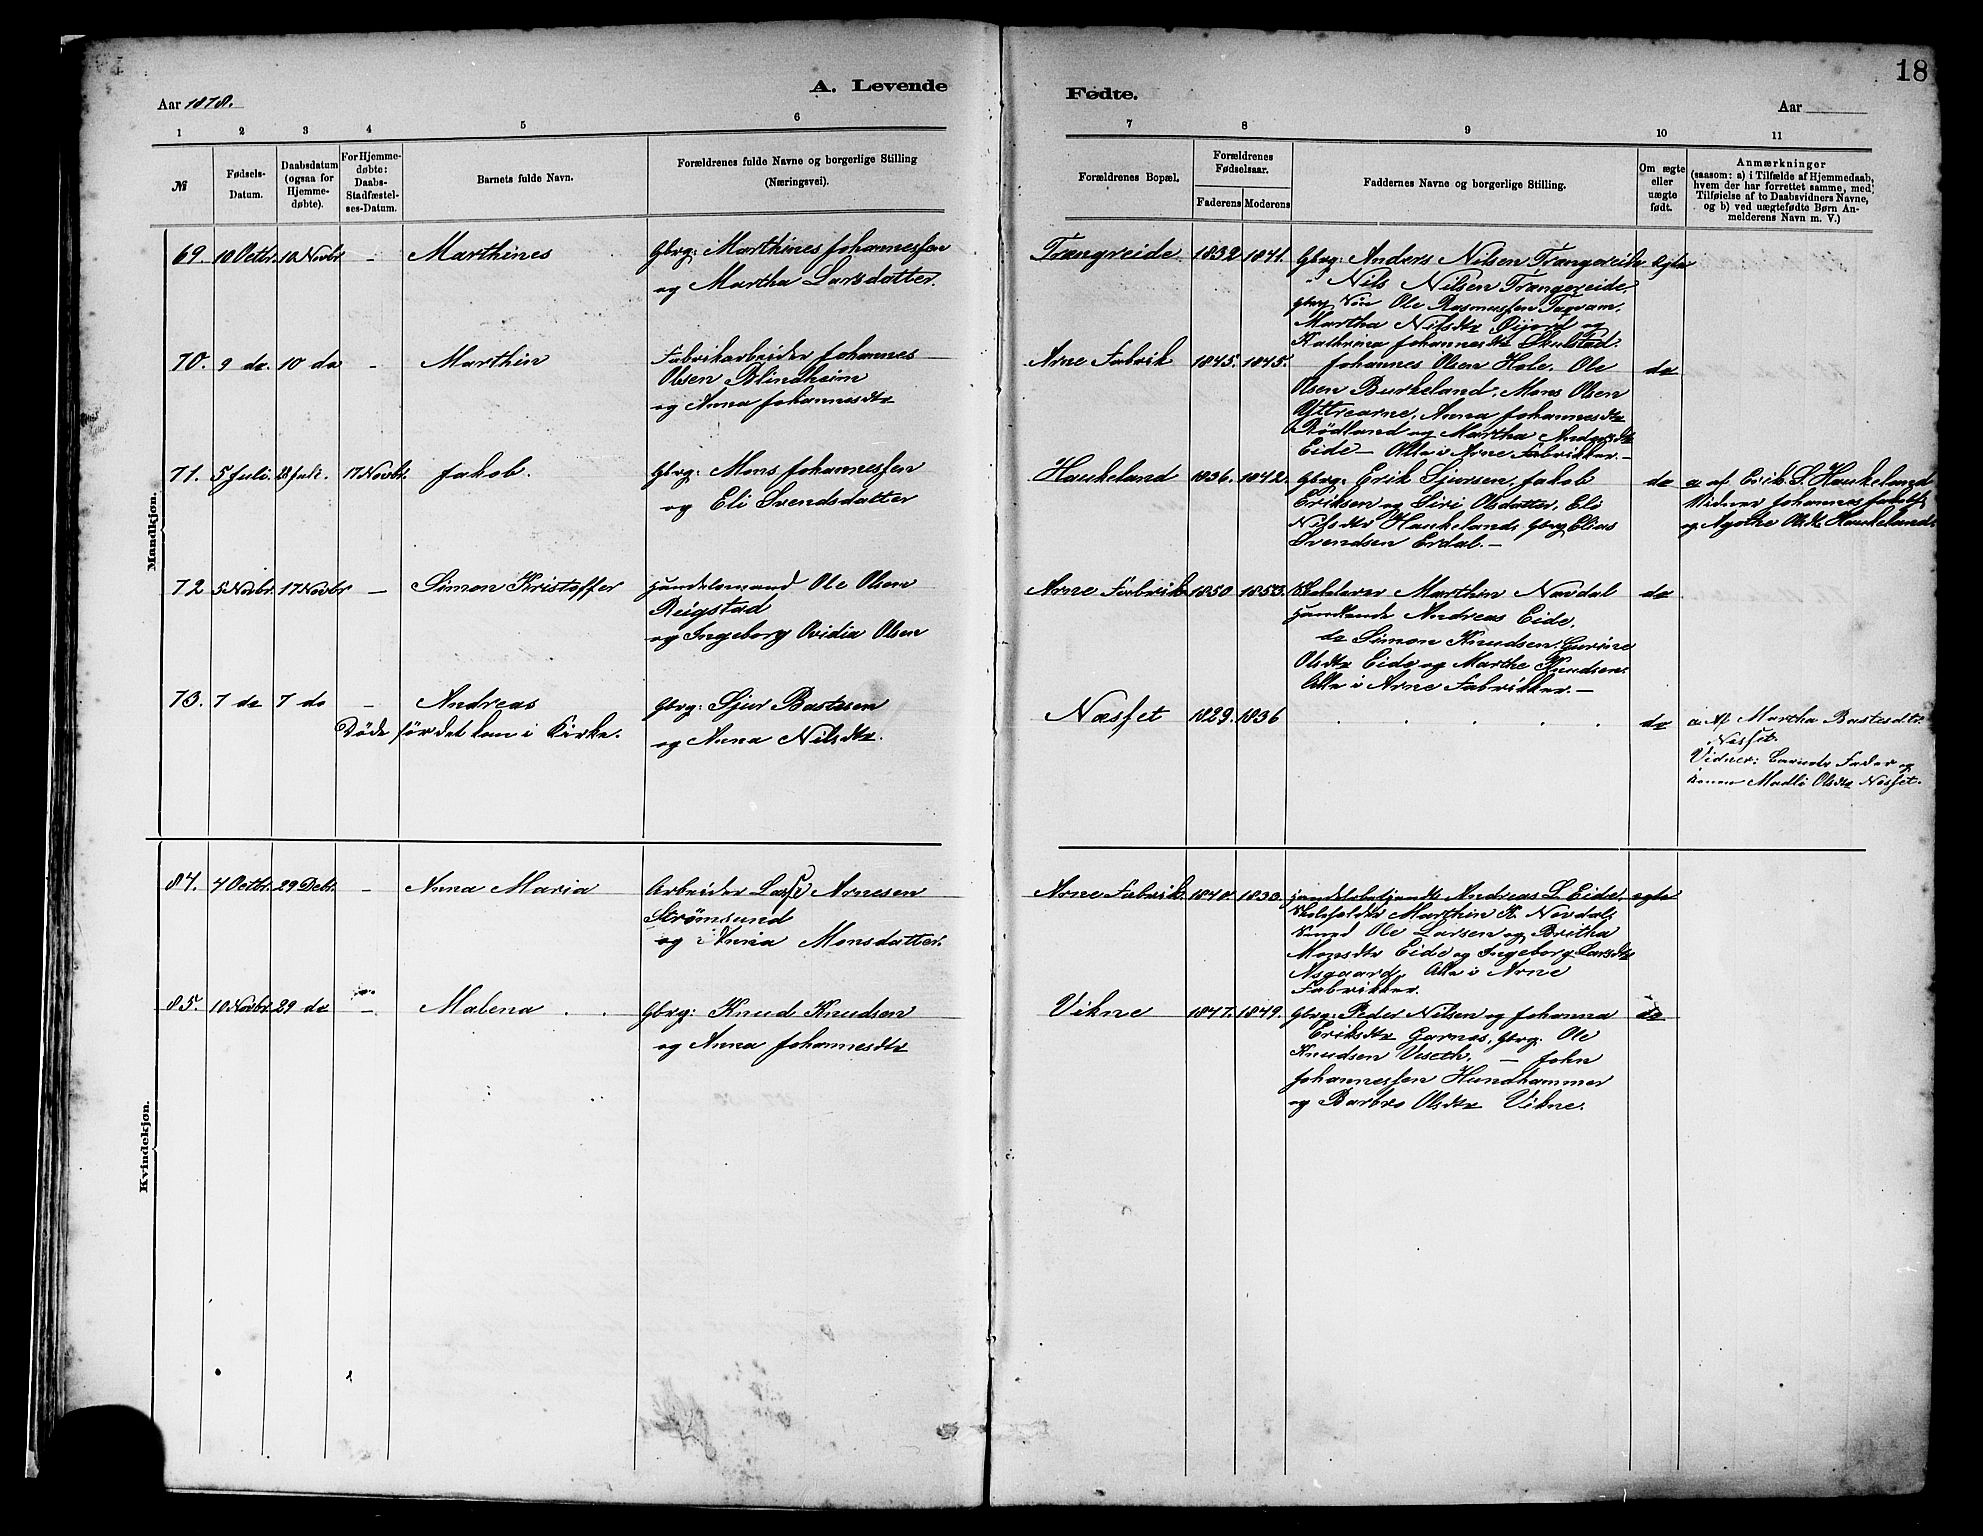 18
A. Levende
Fødte.
Aar 1878.
Aar
1 2 3 4 5 6 7 8 9 10 11
№
Fødsels-Datum.
Daabsdatum (ogsaa for Hjemme-døbte).
For Hjemme-døbte: Daabs-Stadfæstel-ses-Datum.
Barnets fulde Navn.
Forældrenes fulde Navne og borgerlige Stilling
(Næringsvei).
Forældrenes Bopæl.
Forældrenes Fødselsaar.
Faderens Moderens
Faddernes Navne og borgerlige Stilling.
Om ægte eller uægte født.
Anmærkninger
(saasom: a) i Tilfælde af Hjemmedaab,
hvem der har forrettet samme, med
Tilføielse af to Daabsvidners Navne,
og b) ved uægtefødte Børn An-
melderens Navn m. V.)
Mandkjøn.
69. 10 Octbr. 10 Novbr. - Marthines
Gbrg: Marthines Johannessen
og Martha Larsdatter.
Trængreide 1832 1841.
Gbrg: Anders Nilsen Trængereide
" Nils Nilsen Trængereide,
Ole Rasmussen
Martha Nilsdtr Øijord og
Kathrina Johannesdtr Skulstad.
70. 9 do. 10 do - Marthin
Fabrikarbeider Johannes
Olsen Blindheim
og Anna Johannesdtr
Arne Fabrik 1845. 1845.
Johannes Olsen Hole. Ole
Olsen Burkeland, Mons Olsen
Yttrearne, Anna Johannesdtr
Rødland og Martha Andersdtr
Eide - Alle i Arne Fabrikker. -
do
71. 5 Juli. 28 Juli. 17 Novbr. Jakob.
Gbrg: Mons Johannessen
og Eli Svendsdatter
Haukeland 1836. 1842.
Gbrg: Erik Sjursen, Jakob
Eriksen og Siri Olsdatter, Eli
Nilsdtr Haukeland, Gbrg Elias
Svendsen Erdal. -
do
a af Erik S. Haukeland
Vidner Johannes Jakobs.
og Agathe Olsdtr Haukeland.
72 5 Novbr. 17 Novbr - Simon Kristoffer
Handelsmand Ole Olsen
Reigstad
og Ingeborg Ovidia Olsen
Arne Fabrik 1850 1853.
Marthin Navdal
Andreas Eide,
do Simon Knudsen, Gurine
Olsdtr Eide og Marthe Knudsen.
Alle i Arne Fabrikker. -
do
73. 7 do 7 do - Andreas
Døde før det kom i Kirke.
Gbrg: Sjur Bastesen
og Anna Nilsdtr.
Næsset 1829. 1836
do
a Af Martha Bastesdtr.
Næsset.
Vidner: Barnets Fader og
Madli Olsdtr Næsset.
Kvindekjøn.
84. 4 Octbr. 29 Debr. - Anna Maria
Arbeider Lasse Arnesen
Strømsund
og Anna Monsdatter.
Arne Fabrik 1840. 1830.
Andreas L. Eide,
Marthin K. Navdal,
Ole Larsen og Britha
Monsdtr Eide og Ingeborg Larsdtr
Asgaard, Alle i Arne
Fabrikker.
egte
85. 10 Novbr. 29 do - Malena
Gbrg: Knud Knudsen
og Anna Johannesdtr
Vikne 1847. 1849.
Gbrg: Peder Nilsen og Johanna
Eriksdtr Garnæs, Gbrg. Ole
Knudsen Viseth, - John
Johannessen Hundhammer
og Barbro Olsdtr Vikne.
do